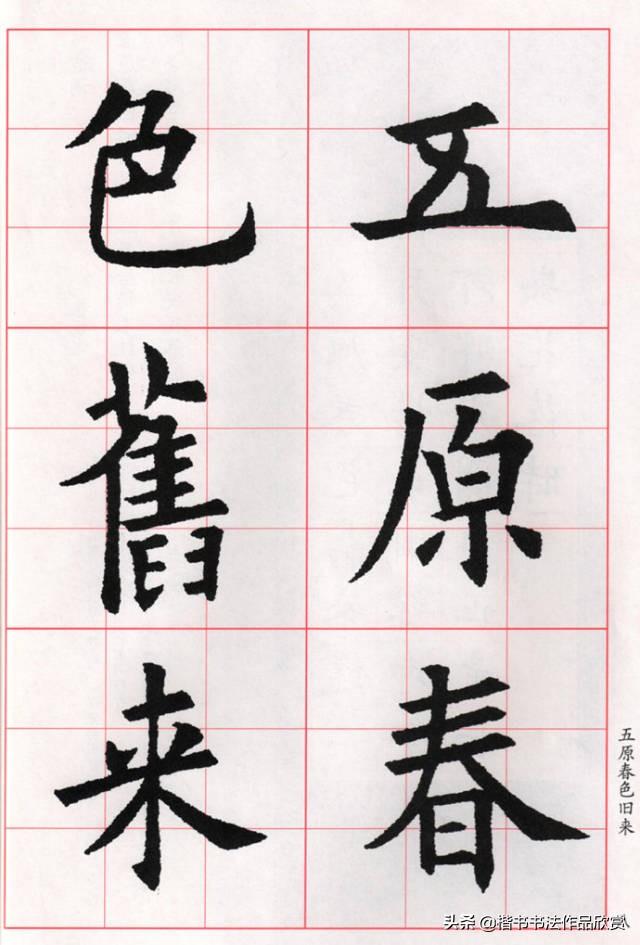 五原春
色舊来
五原春色旧来
头条 @楷书书法作品欣赏